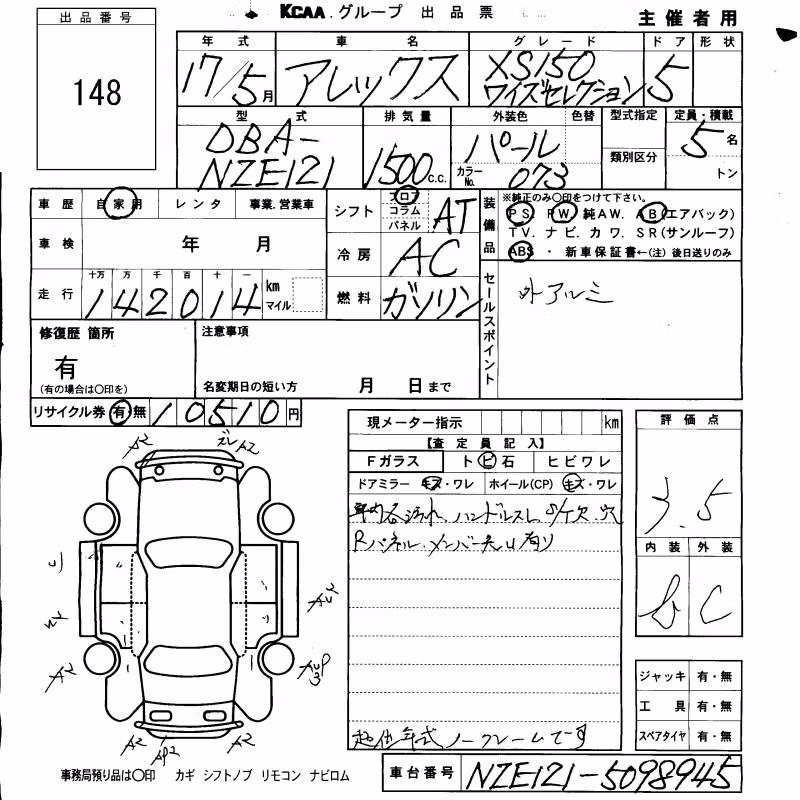 KCAA グループ 出品票
主催者用
出品番号
148
年式 車名 グレード ドア 形状
17/5月 アレックス XS150 ワイズセレクション 5
型式 排気量 外装色 色替 型式指定 定員・積載
DBA-NZE121 1500c.c. パール 5名
カラーNo. 073 類別区分 トン
車歴 自家用 レンタ 事業.営業車
シフト フロア コラム パネル AT
装備品 ※純正のみ〇印をつけて下さい。
PS PW 純AW. AB(エアバック)
TV. ナビ. カワ. SR(サンルーフ)
ABS ・ 新車保証書←(注)後日送りのみ
車検 年 月
冷房 AC
走行 十万 万 千 百 十 一
142014 km マイル
燃料 ガソリン
セールスポイント
外アルミ
修復歴 箇所
有
(有の場合は〇印を)
注意事項
名変期日の短い方 月 日まで
リサイクル券 有 無 10510円
現メーター指示 km
【査定員記入】
Fガラス ト ビ 石 ヒビワレ
ドアミラー キズ・ワレ ホイール(CP) キズ・ワレ
車内各汚れ、ハンドルスレ
Rパネル、メンバー 有り
年式 ノークレームです
評価点
3.5
内装 外装
b C
A2
A2
A2
A2
A2
A2
ジャッキ 有・無
工具 有・無
スペアタイヤ 有・無
事務局預り品は〇印 カギ シフトノブ リモコン ナビロム
車台番号 NZE121-5098945